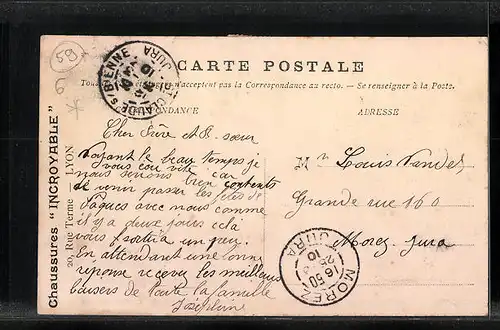 59
6
CARTE POSTALE
Tous les pays étrangers n'acceptent pas la Correspondance au recto. — Se renseigner à la Poste.
CORRESPONDANCE
ADRESSE
ST-CLAUDE-S/BIENNE
JURA
Cher frère et B. sœur
Voyant le beau temps je
vous vite car
nous serions bien contents
de venir passer les fêtes de
Pâques avec nous comme
il y a deux jours cela
vous sortira un peu.
En attendant une bonne
réponse recevez les meilleurs
baisers de toute la famille
Joséphine
Mr Louis Vandel
Grande rue 160
Morez Jura
MOREZ
16 50
25
10
JURA
Chaussures "INCROYABLE"
20, Rue Terme — LYON